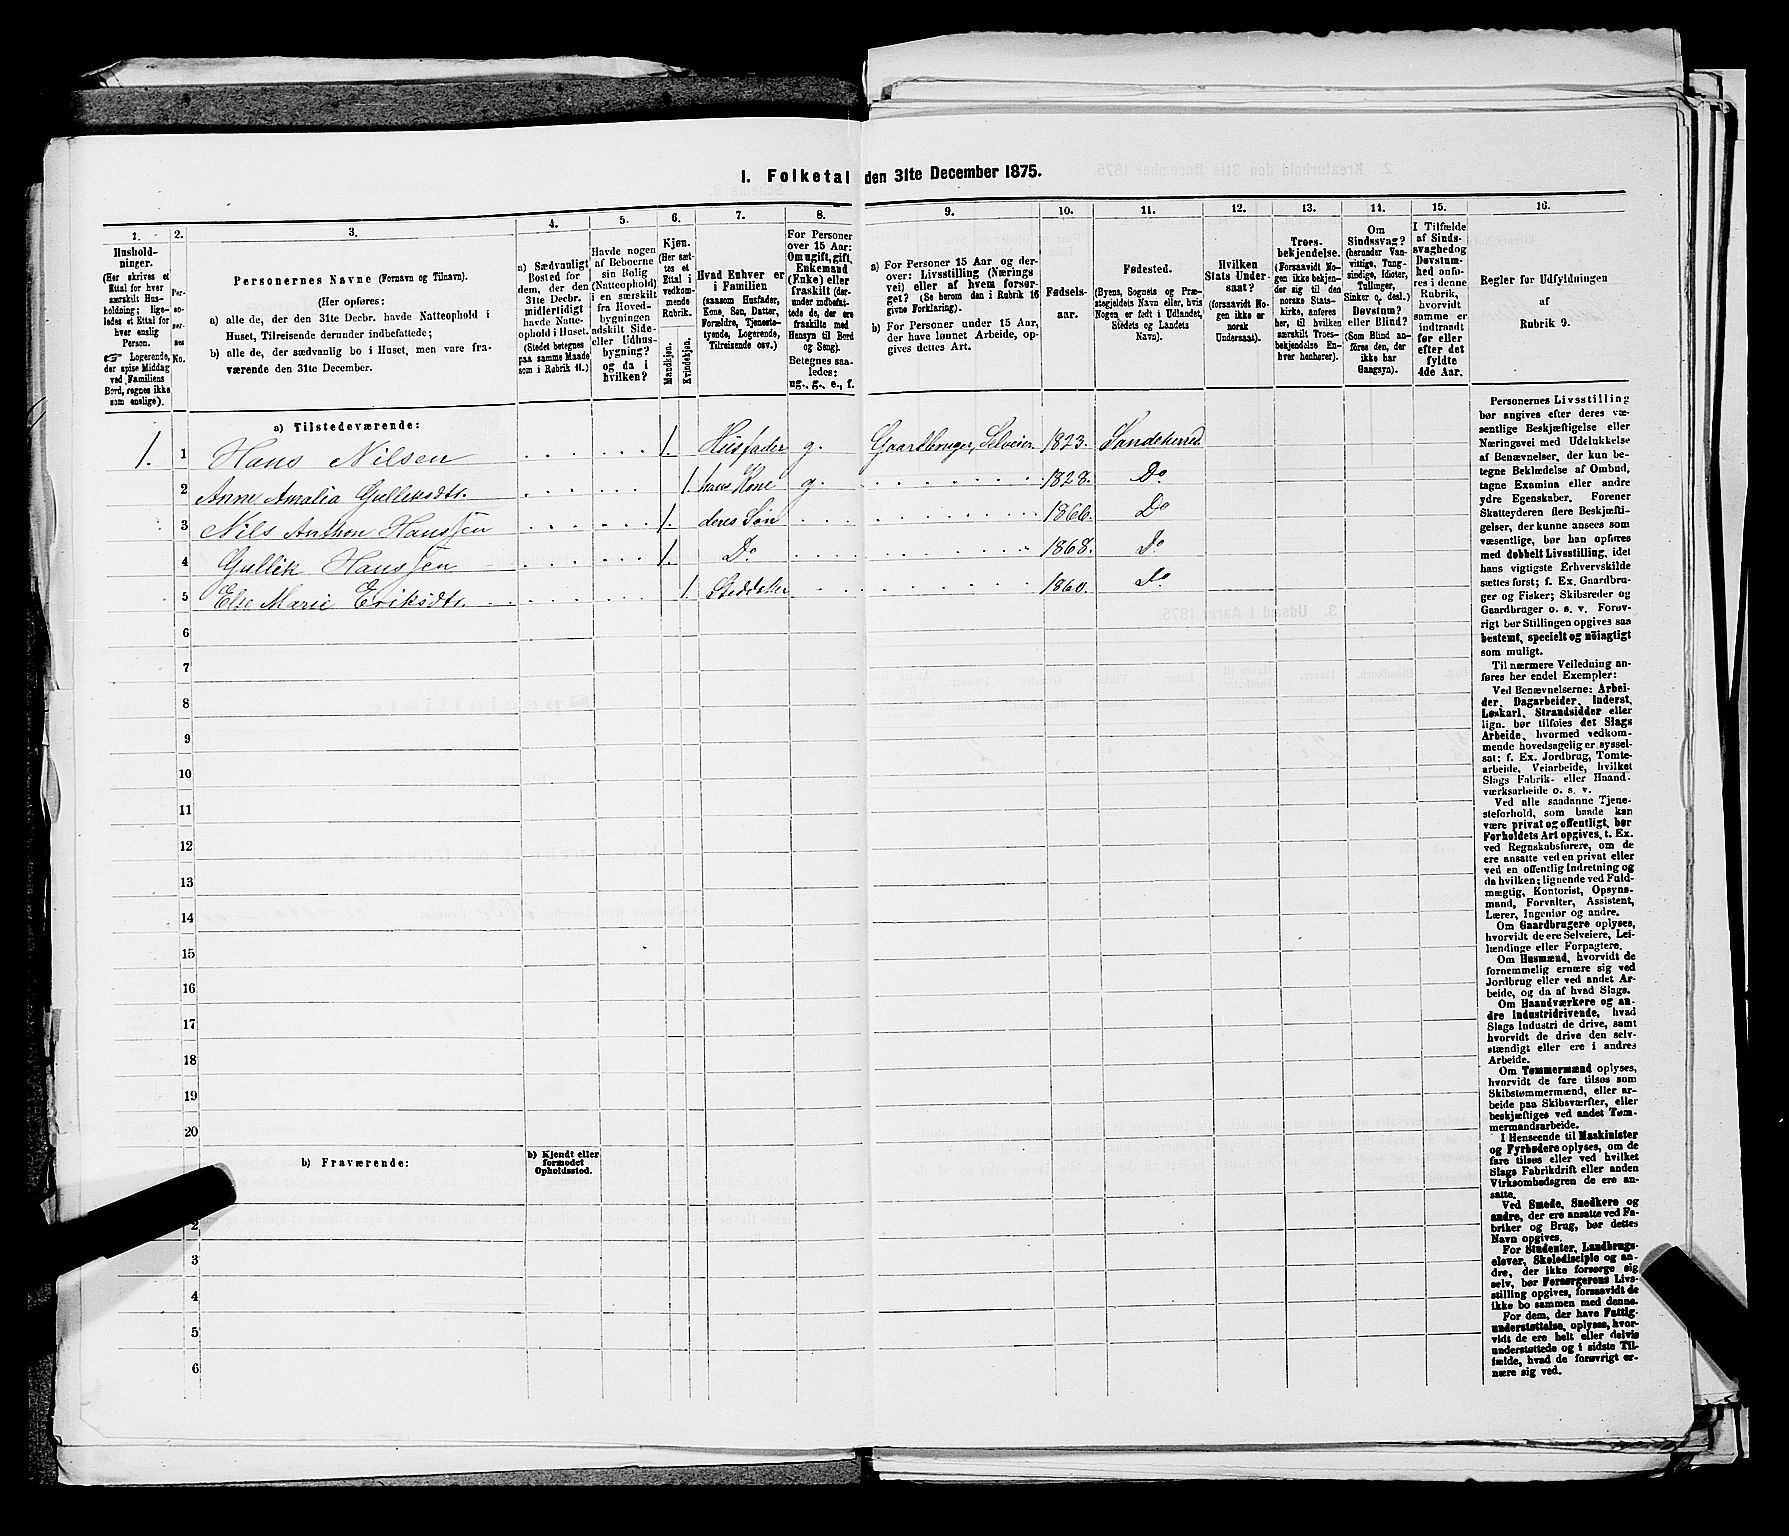 I. Folketal den 31te December 1875.
1. 2. 3. 4. 5. 6. 7. 8. 9. 10. 11. 12. 13. 14. 15. 16.
Hushold-
ninger.
(Her skrives et
Ettal for hver
særskilt Hus-
holdning; lige-
ledes et Ettal for
hver enslig
Person.
☞ Logerende,
der spise Middag
ved Familiens
Bord, regnes ikke
som enslige).
Per-
so-
ner-
nes
No.
Personernes Navne (Fornavn og Tilnavn).
(Her opføres:
a) alle de, der den 31te Decbr. havde Natteophold i
Huset, Tilreisende derunder indbefattede;
b) alle de, der sædvanlig bo i Huset, men vare fra-
værende den 31te December.
a) Sædvanligt
Bosted for
dem, der den
31te Decbr.
midlertidigt
havde Natte-
ophold i Huset.
(Stedet betegnes
paa samme Maade
som i Rubrik 11.)
Havde nogen
af Beboerne
sin Bolig
(Natteophold)
i en særskilt
fra Hoved-
bygningen
adskilt Side-
eller Udhus-
bygning?
og da i
hvilken?
Kjøn.
(Her sæt-
tes et
Ettal i
vedkom-
mende
Rubrik.
Mandkjøn.
Kvindekjøn.
Hvad Enhver er
i Familien
(saasom Husfader,
Kone, Søn, Datter,
Forældre, Tjeneste-
tyende, Logerende,
Tilreisende osv.)
For Personer
over 15 Aar:
Om ugift, gift,
Enkemand
(Enke) eller
fraskilt (der-
under indbefat-
tede de, der ere
fraskilte med
Hensyn til Bord
og Seng).
Betegnes saa-
ledes:
ug., g., e., f.
a) For Personer 15 Aar og der-
over: Livsstilling (Nærings
vei) eller af hvem forsør-
get? (Se herom den i Rubrik 16
givne Forklaring).
b) For Personer under 15 Aar,
der have lønnet Arbeide, op-
gives dettes Art.
Fødsels-
aar.
Fødested.
(Byens, Sognets og Præ-
stegjeldets Navn eller, hvis
Nogen er født i Udlandet,
Stedets og Landets
Navn).
Hvilken
Stats Under-
saat?
(forsaavidt No-
gen ikke er
norsk
Undersaat).
Troes-
bekjendelse.
(Forsaavidt No-
gen ikke bekjen-
der sig til den
norske Stats-
kirke, anføres
her, til hvilken
særskilt Troes-
bekjendelse En-
hver henhører).
Om
Sindssvag?
(herunder Van-
vittige, Tung-
sindige, Idioter,
Tullinger,
Sinker o. desl.)
Døvstum?
eller Blind?
(Som Blind an-
føres den, der
ikke har
Gangsyn).
I Tilfælde
af Sinds-
svaghed og
Døvstum-
hed anfø-
res i denne
Rubrik,
hvorvidt
samme er
indtraadt
før eller
efter det
fyldte
4de Aar.
Regler for Udfyldningen
af
Rubrik 9.
a) Tilstedeværende:
1. 1 Hans Nilsen 1. Husfader g. Gaardbruger, Selveier 1823. Sandeherred
2 Anne Amalia Gulliksdtr. 1. hans Kone g. 1828. Do
3 Nils Anthon Hanssen 1. deres Søn 1866. Do
4 Gullik Hanssen 1. Do 1868. Do
5 Else Marie Eriksdtr. 1. 1860. Do
6
7
8
9
10
11
12
13
14
15
16
17
18
19
20
b) Fraværende: b) Kjendt eller
formodet
Opholdssted.
2
3
4
5
6
Personernes Livsstilling
bør angives efter deres væ-
sentlige Beskjæftigelse eller
Næringsvei med Udelukkelse
af Benævnelser, der kun be-
tegne Beklædelse af Ombud,
tagne Examina eller andre
ydre Egenskaber. Forener
Skatteyderen flere Beskjæfti-
gelser, der kunne ansees som
væsentlige, bør han opføres
med dobbelt Livsstilling, idet
hans vigtigste Erhvervskilde
sættes først; f. Ex. Gaardbru-
ger og Fisker; Skibsreder og
Gaardbruger o. s. v. Forøv-
rigt bør Stillingen opgives saa
bestemt, specielt og nøiagtigt
som muligt.
Til nærmere Veiledning an-
føres her endel Exempler:
Ved Benævnelserne: Arbei-
der, Dagarbeider, Inderst,
Løskarl, Strandsidder eller
lign. bør tilføies det Slags
Arbeide, hvormed vedkom-
mende hovedsagelig er syssel-
sat; f. Ex. Jordbrug, Tomte-
arbeide, Veiarbeide, hvilket
Slags Fabrik- eller Haand-
værksarbeide o. s. v.
Ved alle saadanne Tjene-
steforhold, som baade kan
være privat og offentligt, bør
Forholdets Art opgives, t. Ex.
ved Regnskabsførere, om de
ere ansatte ved en privat eller
ved en offentlig Indretning og
da hvilken; lignende ved Fuld-
mægtig, Kontorist, Opsyns-
mand, Forvalter, Assistent,
Lærer, Ingeniør og andre.
Om Gaardbrugere oplyses,
hvorvidt de ere Selveiere, Lei-
lændinge eller Forpagtere.
Om Husmænd, hvorvidt de
fornemmelig ernære sig ved
Jordbrug eller ved andet Ar-
beide, og da af hvad Slags.
Om Haandværkere og an-
dre Industridrivende, hvad
Slags Industri de drive, samt
hvorvidt de drive den selv-
stændigt eller ere i andres
Arbeide.
Om Tømmermænd oplyses,
hvorvidt de fare tilsøs som
Skibstømmermænd, eller ar-
beide paa Skibsværfter, eller
beskjæftiges ved andet Tøm-
mermandsarbeide.
I Henseende til Maskinister
og Fyrbødere oplyses, om de
fare tilsøs eller ved hvilket
Slags Fabrikdrift eller anden
Virksombedsgren de ere an-
satte.
Ved Smede, Snedkere og
andre, der ere ansatte ved Fa-
briker og Brug, bør dettes
Navn opgives.
For Studenter, Landbrugs-
elever, Skoledisciple og an-
dre, der ikke forsørge sig
selv, bør Forsørgerens Livs-
stilling opgives, forsaavidt de
ikke bo sammen med denne.
For dem, der have Fattig-
understøttelse, oplyses, hvor-
vidt de ere helt eller delvis
understøttede og i sidste Til-
fælde, hvad de forøvrigt er-
nære sig ved.